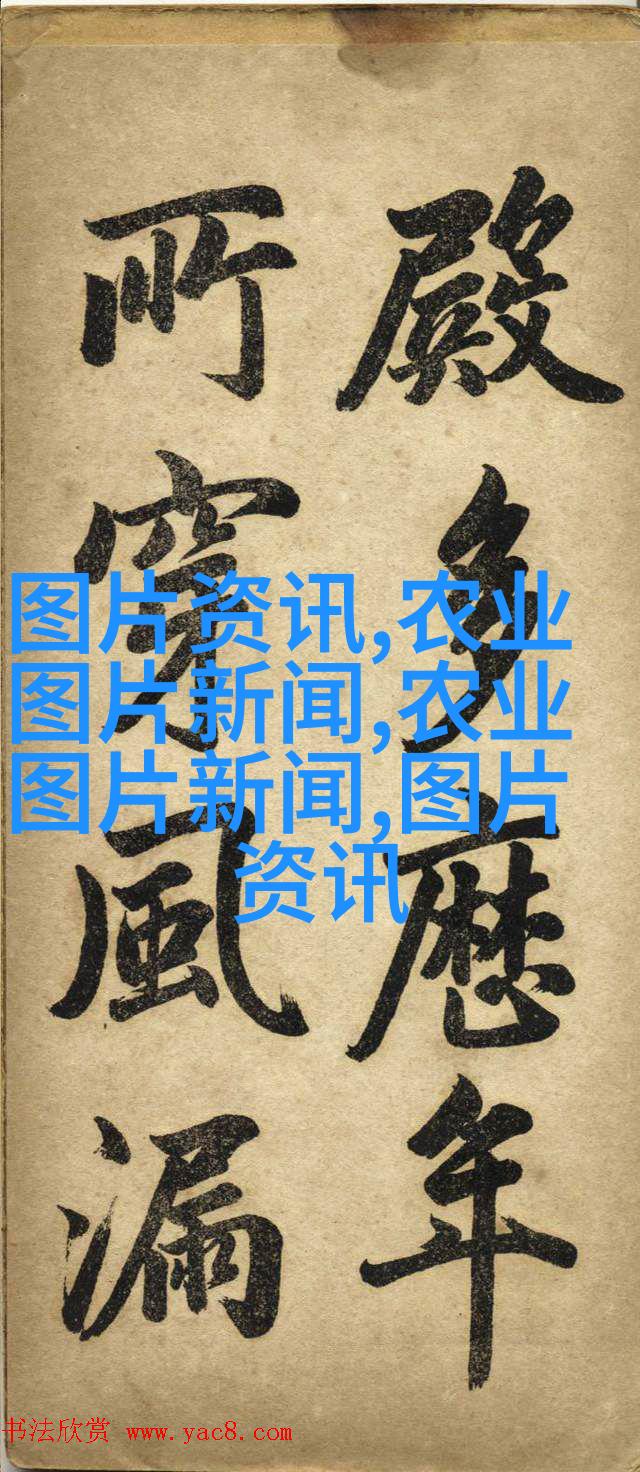 殿多歷年
所穿風漏
图片资讯,农业
图片新闻,农业
图片新闻,图片
资讯
书法欣赏 www.yac8.com